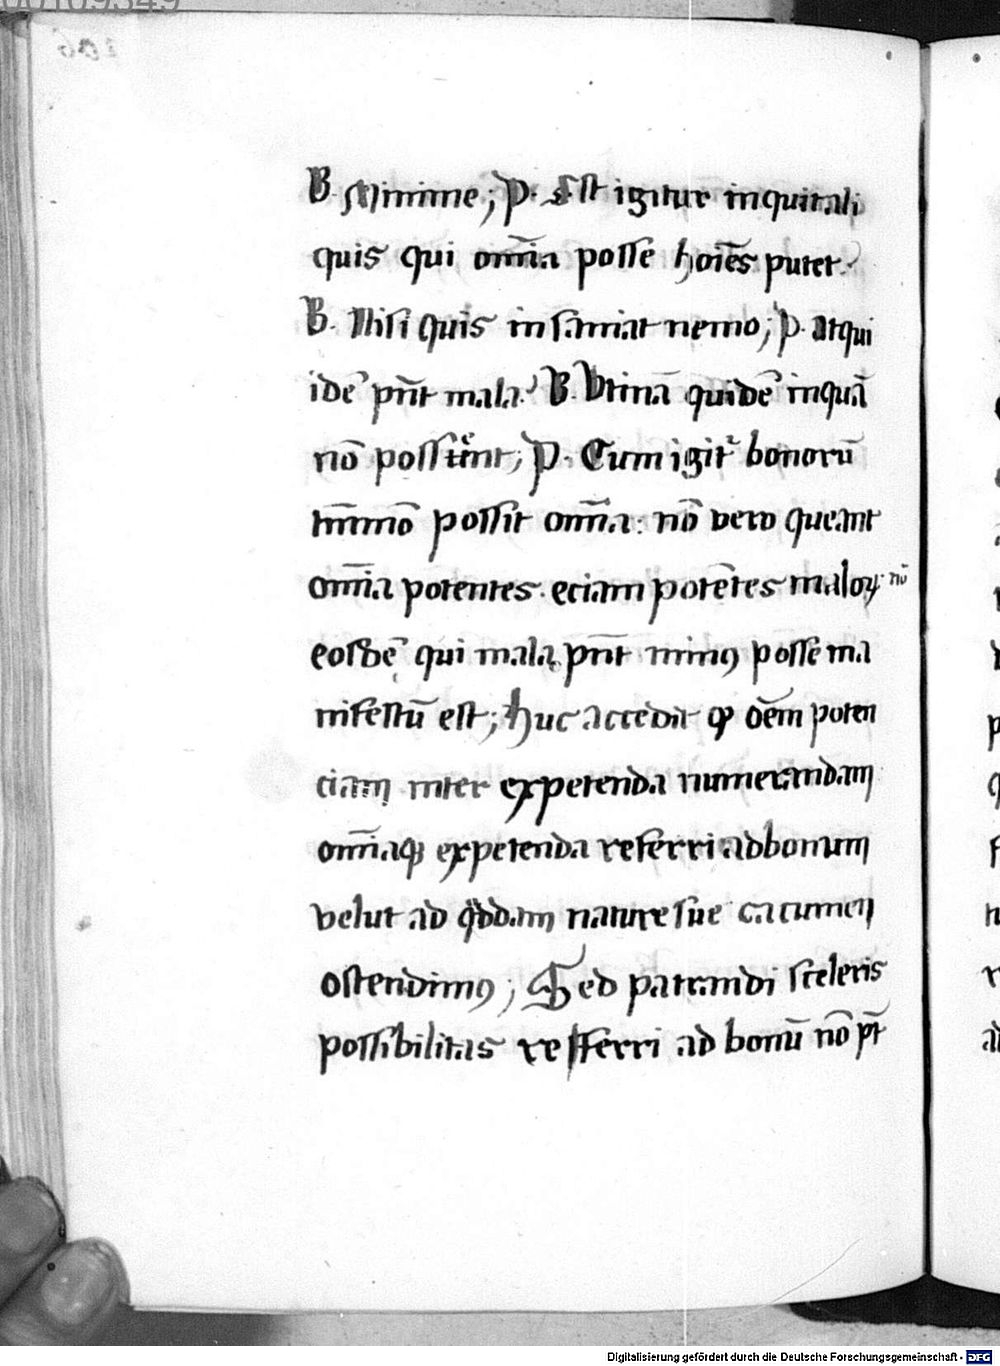 B. Minime; P. Est igitur inquit ali
quis qui om̄ia posse hoīes putet.
B. Nisi quis insaniat nemo; P. atqui
idē pn̄t mala. B. Utinā quidē inquā
nō possent; P. Cum igit᷑ bonorū
t̄mmō possit om̄ia: nō vero queant
om̄ia potentes eciam potētes maloꝝ nō
eosdē qui mala pn̄t minꝰ posse ma
nifestū est; Huc accedit ꝙ oēm poten
ciam inter expetenda numerandam
om̄iaqꝫ expetenda referri ad bonum
velut ad qͦddam nature sue cacumen
ostendimꝰ; Sed patrandi sceleris
possibilitas referri ad bonū nō pt̄
Digitalisierung gefördert durch die Deutsche Forschungsgemeinschaft - DFG